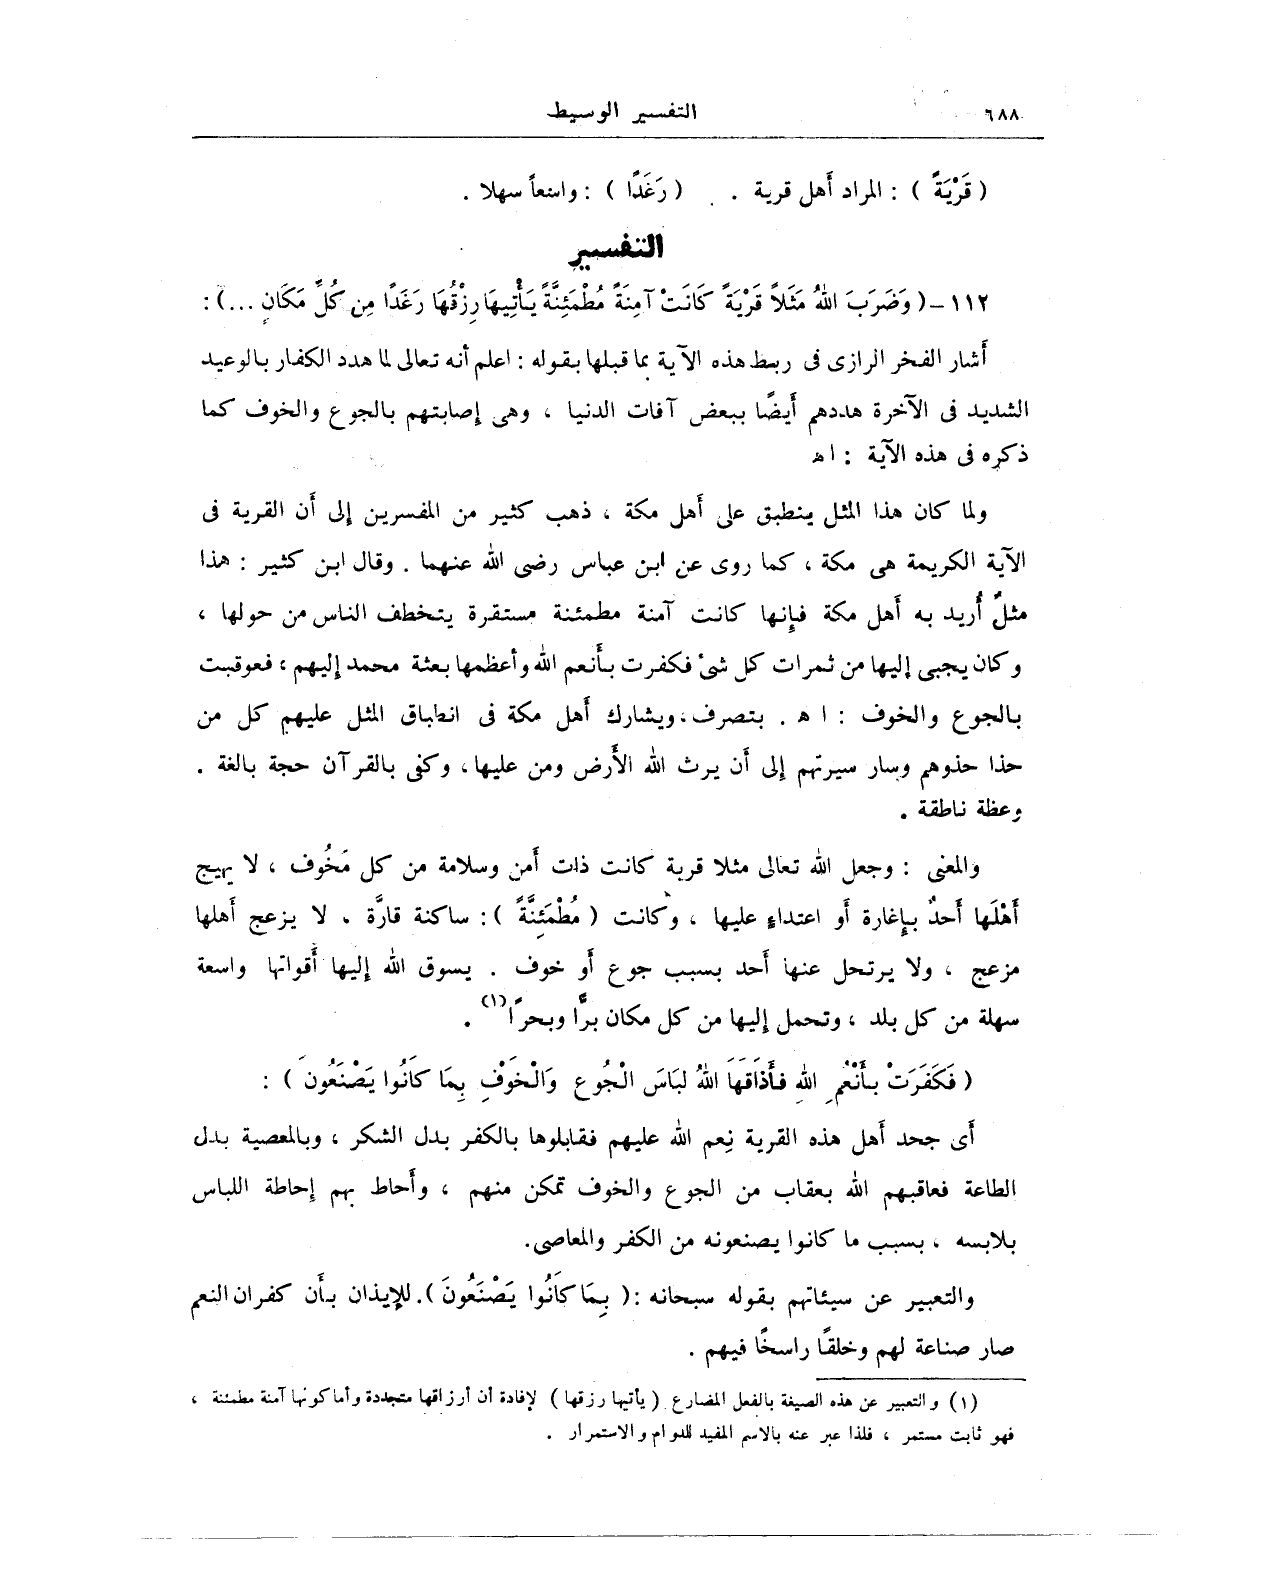 ٦٨٨ التفسير الوسيط
( قَرْيَةً ) : المراد أَهل قرية . ( رَغَدًا ) : واسعاً سهلا .
التفسير
١١٢ – ( وَضَرَبَ اللهُ مَثَلاً قَرْيَةً كَانَتْ آمِنَةً مُطْمَئِنَّةً يَأْتِيهَا رِزْقُهَا رَغَدًا مِن كُلِّ مَكَانٍ ... ) :
أَشار الفخر الرازى فى ربط هذه الآية بما قبلها بقوله : اعلم أنه تعالى لما هدد الكفار بالوعيد
الشديد فى الآخرة هددهم أَيضًا ببعض آفات الدنيا ، وهى إصابتهم بالجوع والخوف كما
ذكره فى هذه الآية : اهـ
ولما كان هذا المثل ينطبق على أَهل مكة ، ذهب كثير من المفسرين إلى أَن القرية فى
الآية الكريمة هى مكة ، كما روى عن ابن عباس رضى الله عنهما . وقال ابن كثير : هذا
مثلٌ أُريد به أَهل مكة فإِنها كانت آمنة مطمئنة مستقرة يتخطف الناس من حولها ،
وكان يجبى إليها من ثمرات كل شئ فكفرت بأَنعم الله وأَعظمها بعثة محمد إليهم ؛ فعوقبت
بالجوع والخوف : ا هـ . بتصرف ، ويشارك أَهل مكة فى انطباق المثل عليهم كل من
حذا حذوهم وسار سيرتهم إلى أَن يرث الله الأَرض ومن عليها ، وكفى بالقرآن حجة بالغة .
وعظة ناطقة .
والمعنى : وجعل الله تعالى مثلا قرية كانت ذات أَمن وسلامة من كل مَخُوف ، لا يهيج
أَهْلَها أَحدٌ بإِغارة أَو اعتداءٍ عليها ، وكانت ( مُطْمَئِنَّةً ) : ساكنة قارَّة . لا يزعج أَهلها
مزعج ، ولا يرتحل عنها أَحد بسبب جوع أَو خوف . يسوق الله إليها أَقواتها واسعة
سهلة من كل بلد ، وتحمل إليها من كل مكان برًّا وبحرًا (١) .
( فَكَفَرَتْ بِأَنْعُمِ اللهِ فَأَذَاقَهَا اللهُ لِبَاسَ الْجُوعِ وَالْخَوْفِ بِمَا كَانُوا يَصْنَعُونَ ) :
أَى جحد أَهل هذه القرية نِعم الله عليهم فقابلوها بالكفر بدل الشكر ، وبالمعصية بدل
الطاعة فعاقبهم الله بعقاب من الجوع والخوف تمكن منهم ، وأَحاط بهم إحاطة اللباس
بلابسه ، بسبب ما كانوا يصنعونه من الكفر والمعاصى.
والتعبير عن سيئاتهم بقوله سبحانه : ( بِمَا كَانُوا يَصْنَعُونَ ). للإيذان بأَن كفران النعم
صار صناعة لهم وخلقًا راسخًا فيهم .
(١) والتعبير عن هذه الصيغة بالفعل المضارع ( يأتيها رزقها ) لإفادة أن أرزاقها متجددة وأما كونها آمنة مطمئنة ،
فهو ثابت مستمر ، فلذا عبر عنه بالاسم المفيد للدوام والاستمرار .